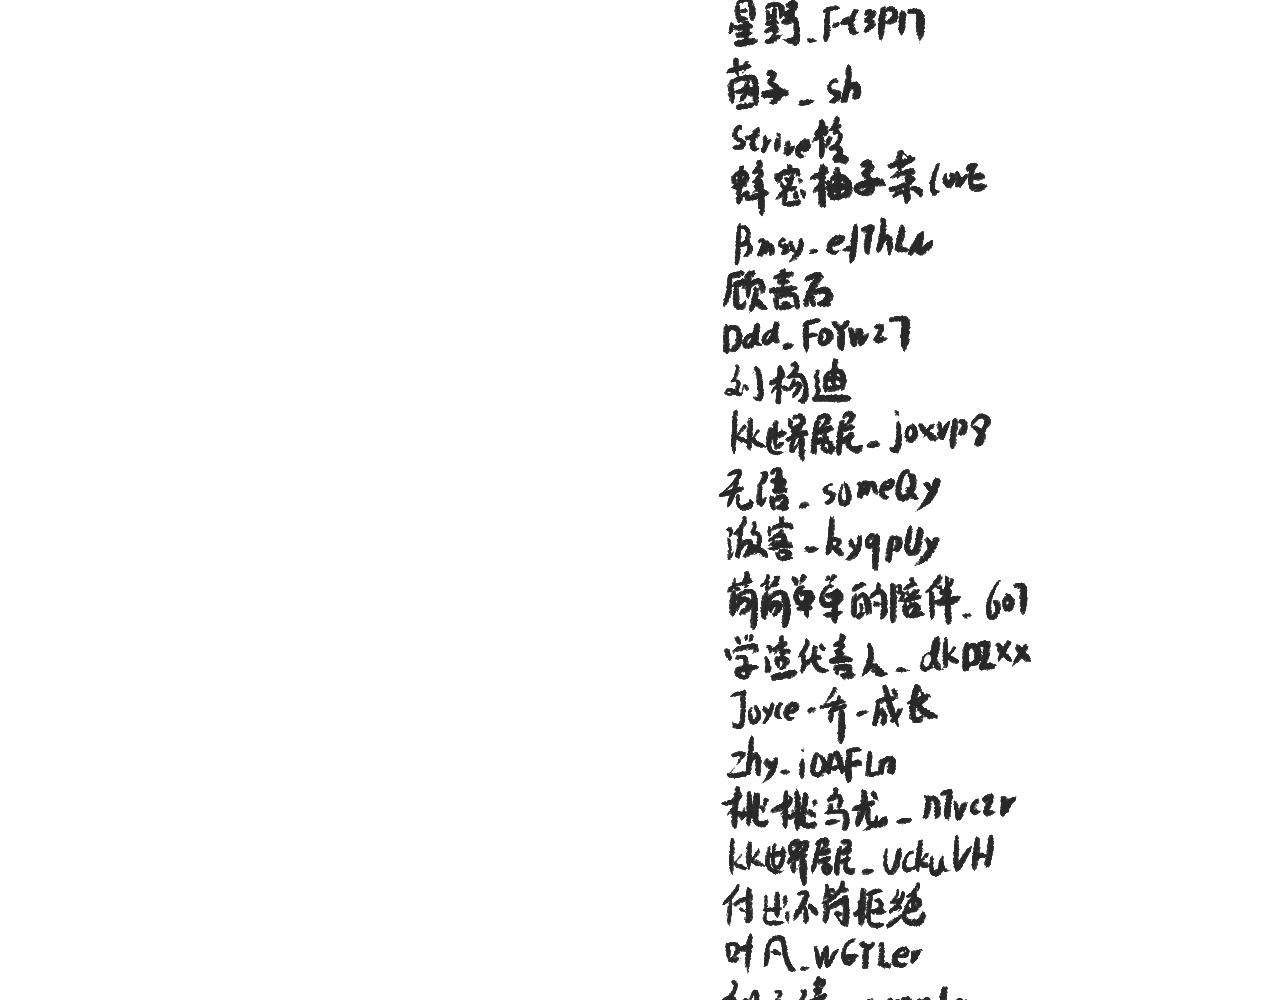 星野_
茵子_sh
strive桉
蜂蜜柚子茶
Bmsy_
顾言石
Ddd_FoYwz7
刘杨迪
kk世界居民_joxvp8
无语_someQy
游客_kyqpUy
简简单单的陪伴_607
学渣代言人_dkDZXx
Joyce-乔-成长
zhy_iOAFLn
桃桃乌龙_n7vczr
kk世界居民_UckuVH
付出不简拒绝
叶凡_wGYLer